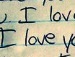 , I love
I love